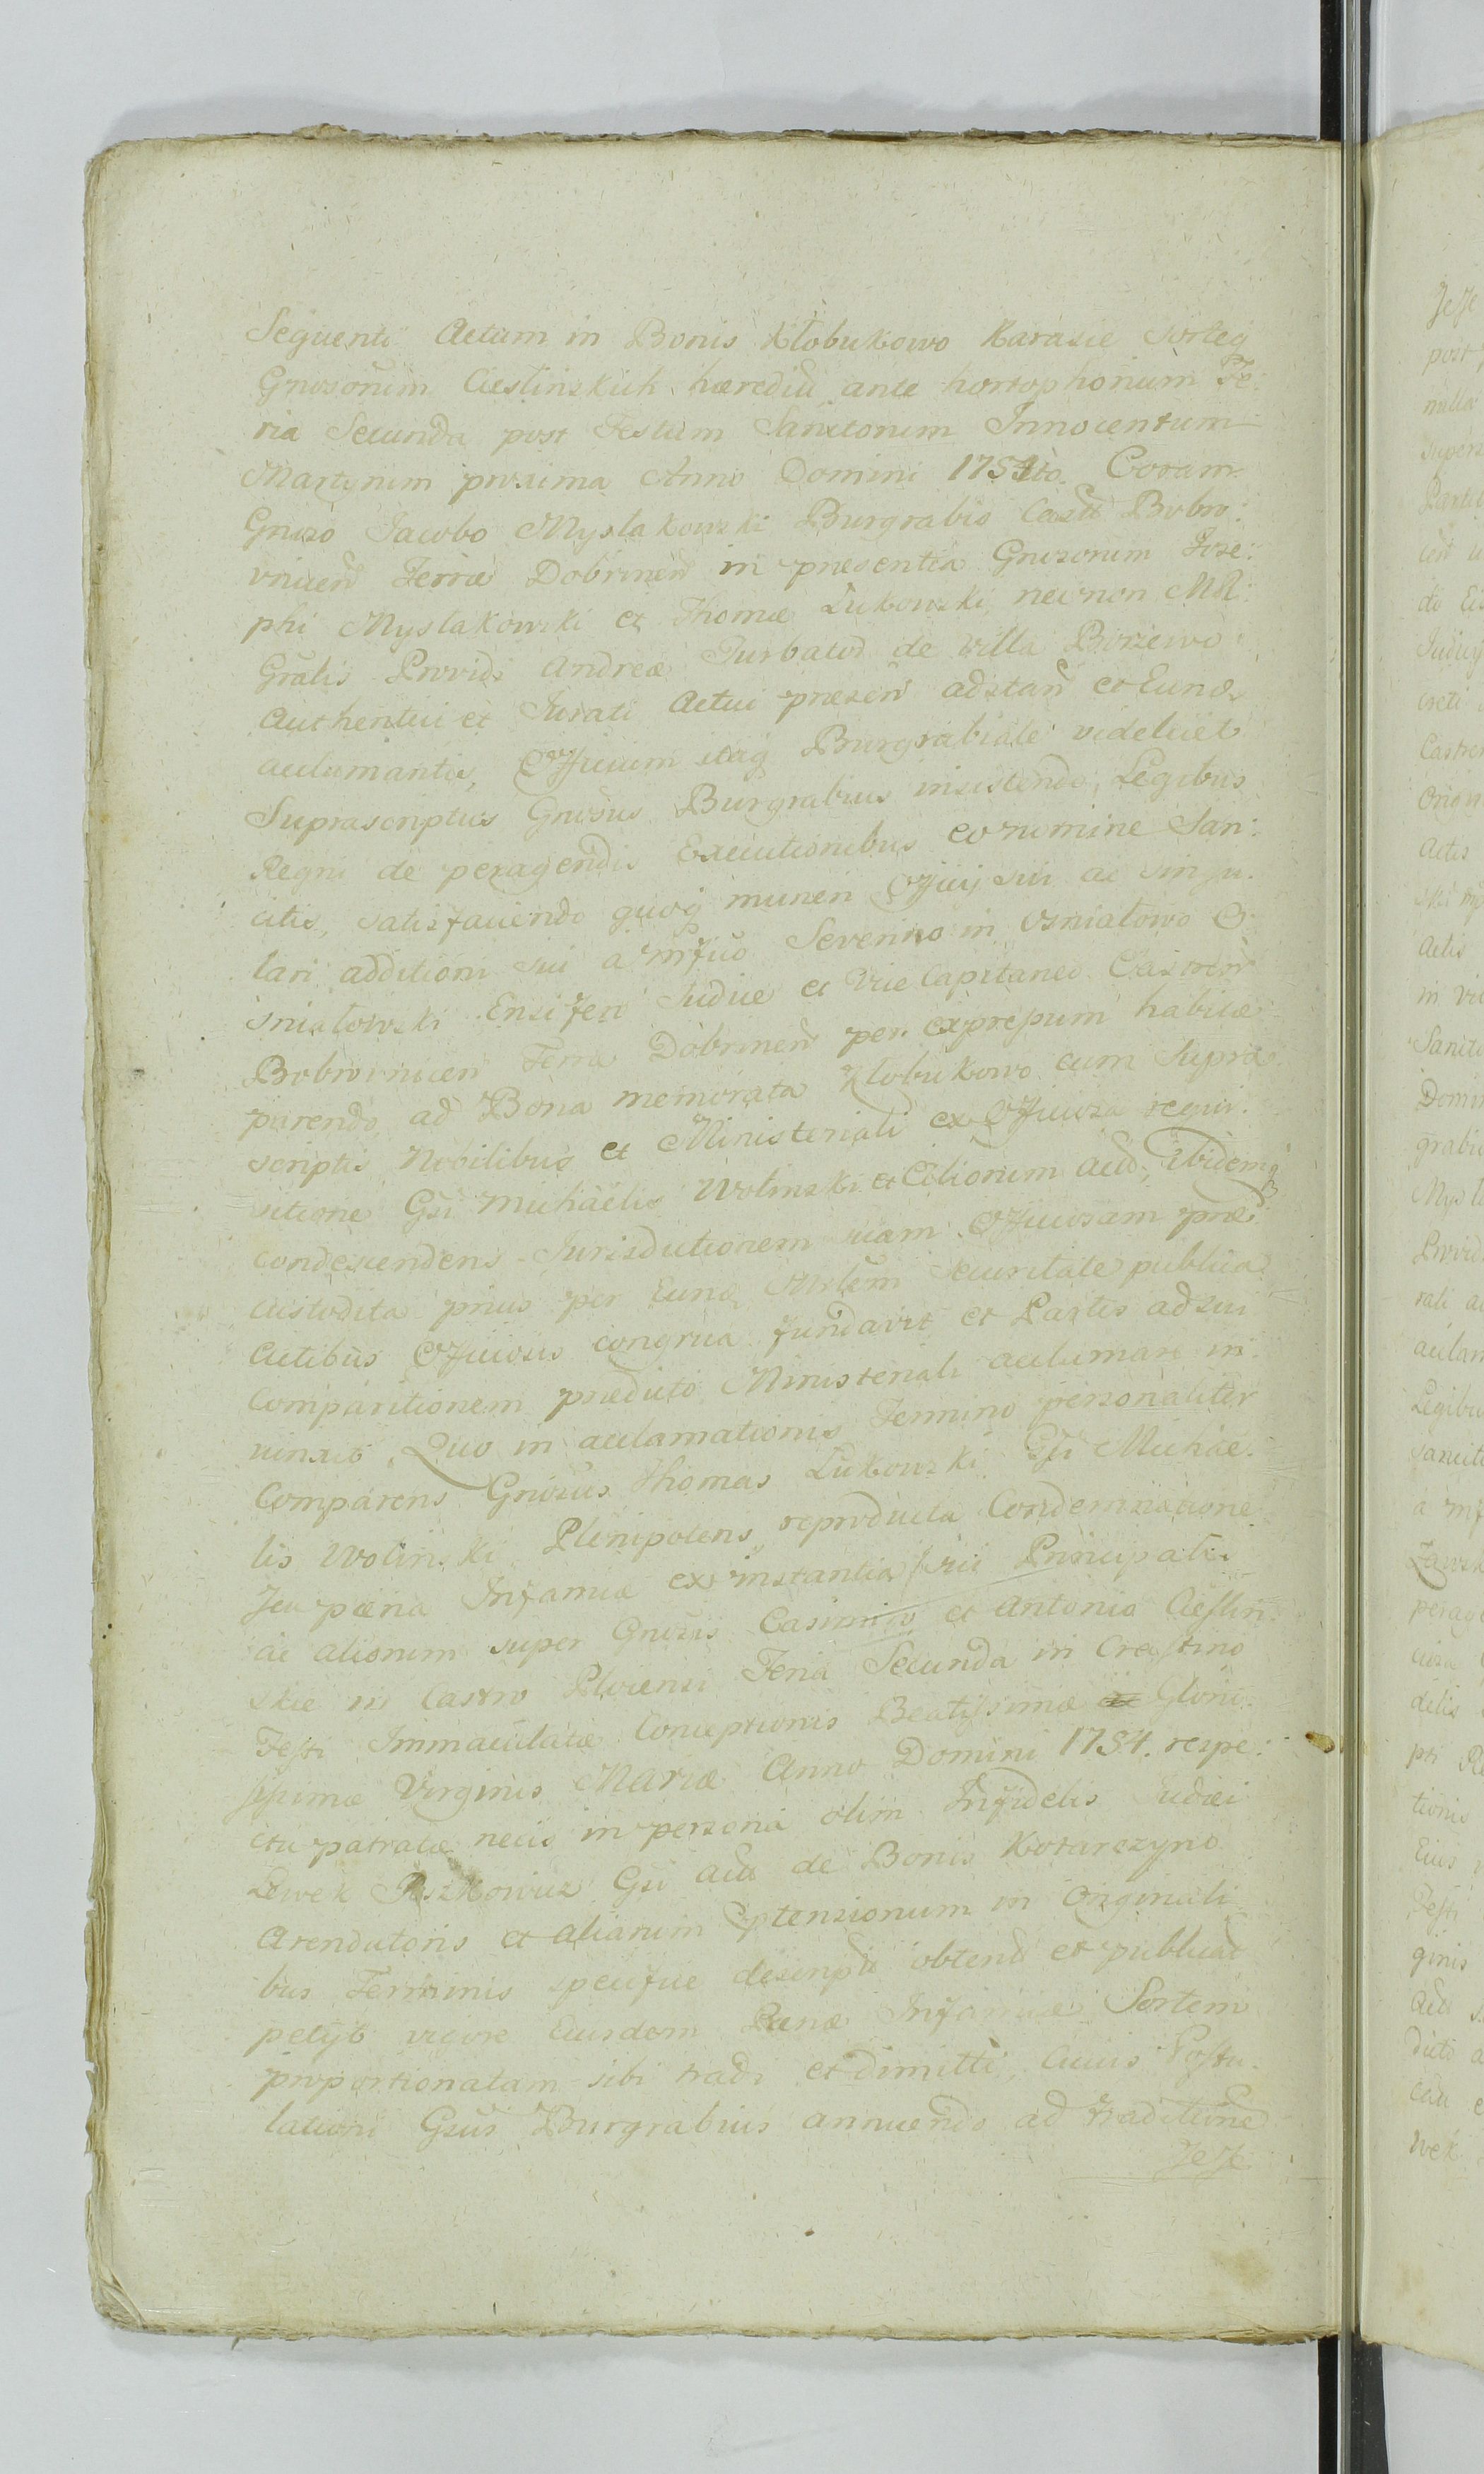 Sequenti Actum in Bonis Kłobukowo Karasie sorteq
Gnosorum Cieslinskich hærediu ante hortophonium Fe:
ria Secunda post Festum Sanctorum Innocentum
Martyrum proxima Anno Domini 1784to. Coram
Gnoso Jacobo Mysłakowski Burgrabio Castri Bobro:
vnicen Terræ Dobrinen in præsentia Gnosorum Jose:
phi Mysłakowski et Thomæ Lukowski, necnon MR:
Gralis Providi Andreæ Turbator de Villa Borzewo
Authentici et Jurati Actui præsen adstan et Eund
acclamantis, Officium itaq Burgrabiale videlicet
Suprascriptus Gnosus Burgrabius insistendo, Legibus
Regni de peragendis Executionibus eo nomine San:
citis, satisfaciendo quoq muneri Officij sui ac singu:
lari additioni sui a Mfico Severino in Osniałowo O
sniałowski Ensifero Judice et Vice Capitaneo Castren
Bobrovnicen Terræ Dobrinen per expressum habitæ
parendo, ad Bona memorata Kłobukowo cum Supra
scriptis Nobilibus et Ministeriali ex Officiosa requi:
sitione Gsi Michaelis Wolinski et Aliorum Act, ibidemq
condescendens Jurisdictionem suam Officiosam præ
custodita prius per Eund Mrlem securitate publica
Actibus Officiosis congrua fundavit et Partes ad sui
Comparitionem prædicto Ministeriali acclamari in:
iunxit. Quo in acclamationis Termino personaliter
Comparens Gnosus Thomas Lukowski Gsi Michae:
lis Wolinski Plenipotens, reproducta Condemnatione
seu pæna Infamiæ ex instantia sui Principali
ac aliorum super Gnosis Casimiro et Antonio Cieslin
skie in Castro Plocensi Feria Secunda in Crastino
Festi Immaculatæ Conceptionis Beatissimæ Glorio:
sissimæ Virginis MARIÆ Anno Domini 1784. respe:
ctu patratæ necis in persona olim Infidelis Judæi
Lewek Gsi Act de Bonis Kotarczyno
Arendatoris et aliarum Ptensionum in Originali
bus Terminis specifice descripti obtend et publicat
petijt vigore Eiusdem Pænæ Infamiæ Sortem
proportionatam sibi tradi et dimitti, Cuius Postu
lationi Gsus Burgrabius annuendo ad traditione